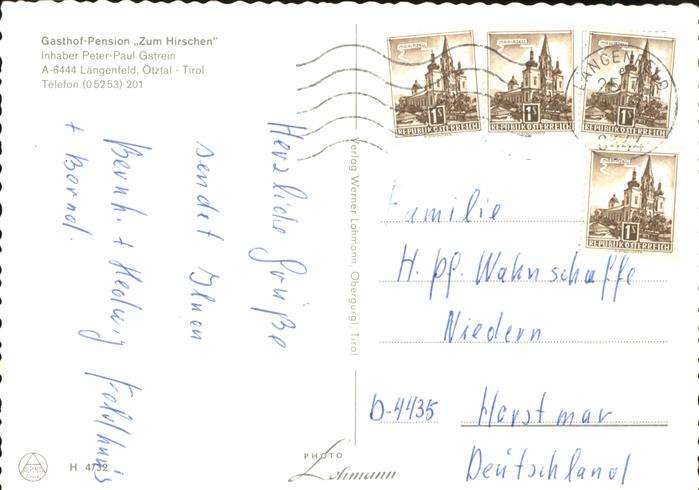 Gasthof-Pension „Zum Hirschen"
Inhaber Peter-Paul Gstrein
A-6444 Längenfeld, Ötztal - Tirol
Telefon (05253) 201
Herzliche Grüße
sendet Ihnen
Bernh. + Hedwig
+ Bernd.
Verlag Werner Lohmann, Obergurgl, Tirol
MARIAZELL
1S
REPUBLIK ÖSTERREICH
MARIAZELL
1S
REPUBLIK ÖSTERREICH
1S
REPUBLIK ÖSTERREICH
MARIAZELL
1S
REPUBLIK ÖSTERREICH
Familie
H. pp. Wahnschaffe
Niedern
D-4435 Horstmar
Deutschland
H 4732
PHOTO
Lohmann